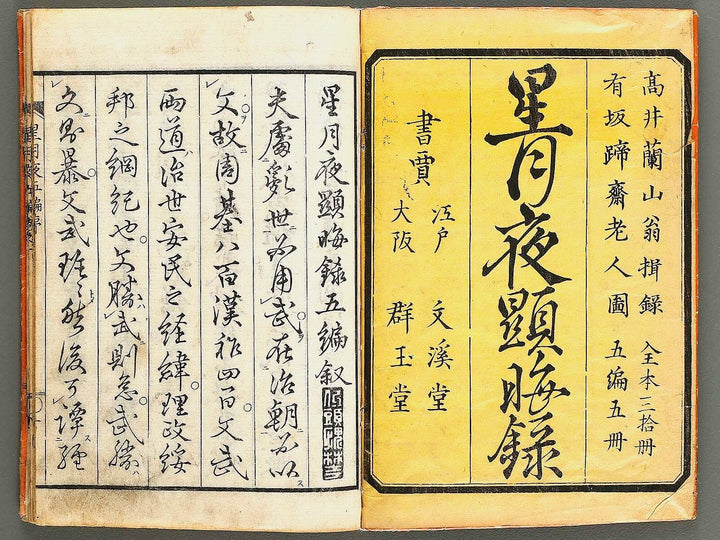 高井蘭山翁揖録 全本三拾冊
有坂蹄齋老人圖 五编五冊
星月夜顯晦録
書賈
江戸 文溪堂
大阪 群玉堂
星月夜顯晦録五編叙
夫處亂世必用武在治朝必以
文故周基八百漢祚四百文武
両道治世安民之経緯理政綏
邦之綱紀也文勝武則怠武勝
文則暴文武班然後可譚経